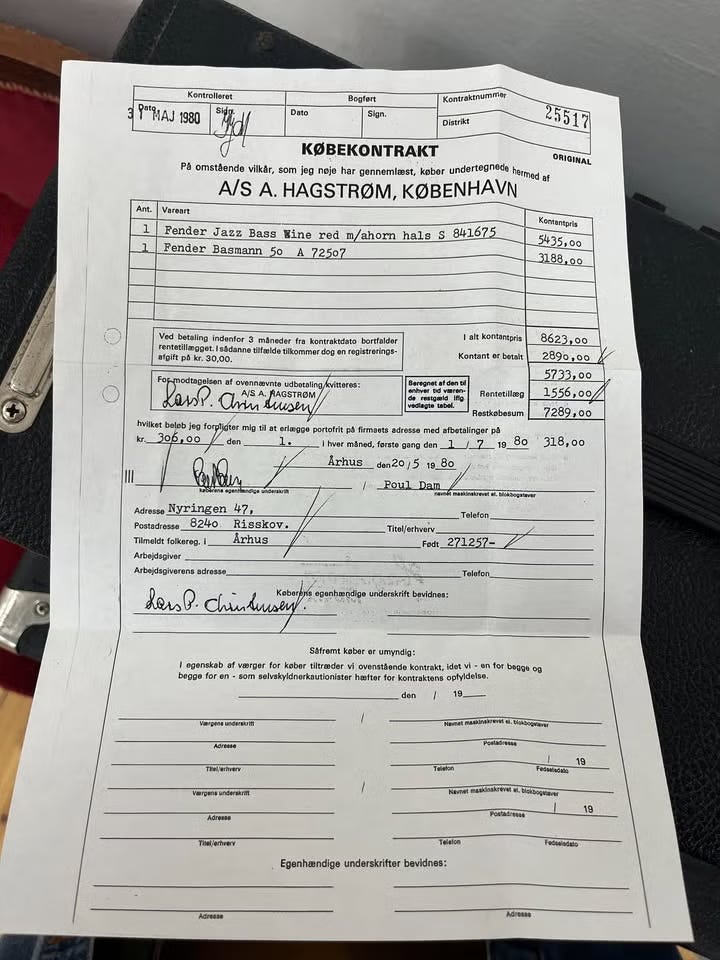 Kontrolleret
Bogført
Kontraktnummer 25517
Dato 31 MAJ 1980 Sign. Dato Sign.
Distrikt
KØBEKONTRAKT ORIGINAL
På omstående vilkår, som jeg nøje har gennemlæst, køber undertegnede hermed af
A/S A. HAGSTRØM, KØBENHAVN
Ant. Vareart Kontantpris
1 Fender Jazz Bass Wine red m/ahorn hals S 841675 5435,00
1 Fender Basmann 50 A 72507 3188,00
Ved betaling indenfor 3 måneder fra kontraktdato bortfalder
rentetillægget. I sådanne tilfælde tilkommer dog en registrerings-
afgift på kr. 30,00.
I alt kontantpris 8623,00
Kontant er betalt 2890,00
5733,00
For modtagelsen af ovennævnte udbetaling kvitteres:
A/S A. HAGSTRØM
Lars P. Christensen
Beregnet af den til
enhver tid væren-
de restgæld iflg.
vedlagte tabel.
Rentetillæg 1556,00
Restkøbesum 7289,00
hvilket beløb jeg forpligter mig til at erlægge portofrit på firmaets adresse med afbetalinger på
kr. 306,00 den 1. i hver måned, første gang den 1 / 7 19 80 318,00
Århus den 20/5 19 80
/ Poul Dam
køberens egenhændige underskrift navnet maskinskrevet el. blokbogstaver
Adresse Nyringen 47, Telefon
Postadresse 8240 Risskov. Titel/erhverv
Tilmeldt folkereg. i Århus Født 271257-
Arbejdsgiver
Arbejdsgiverens adresse Telefon
Køberens egenhændige underskrift bevidnes:
Lars P. Christensen
Såfremt køber er umyndig:
I egenskab af værger for køber tiltræder vi ovenstående kontrakt, idet vi - en for begge og
begge for en - som selvskyldnerkautionister hæfter for kontraktens opfyldelse.
den / 19
/
Værgens underskrift Navnet maskinskrevet el. blokbogstaver
Adresse Postadresse
/ 19
Titel/erhverv Telefon Fødselsdato
/
Værgens underskrift Navnet maskinskrevet el. blokbogstaver
/ 19
Adresse Postadresse
Titel/erhverv Telefon Fødselsdato
Egenhændige underskrifter bevidnes:
Adresse Adresse